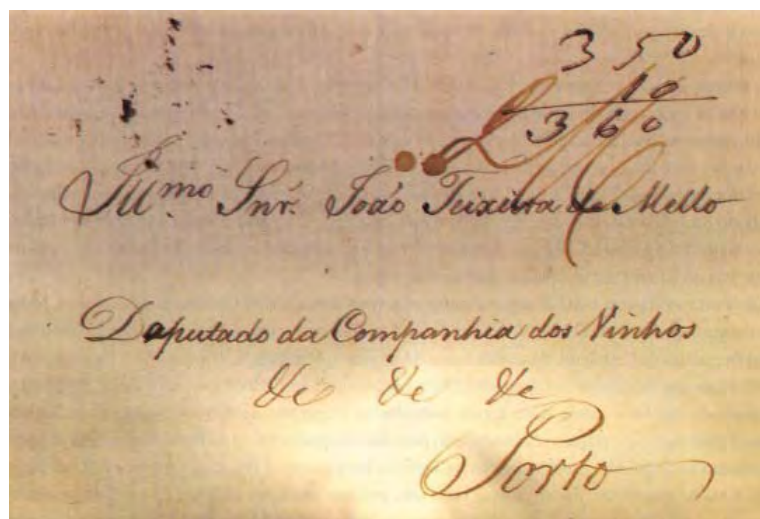 350
10
360
Ill.mo Snr. João Teixeira de Mello
Deputado da Companhia dos Vinhos
&c &c &c
Porto